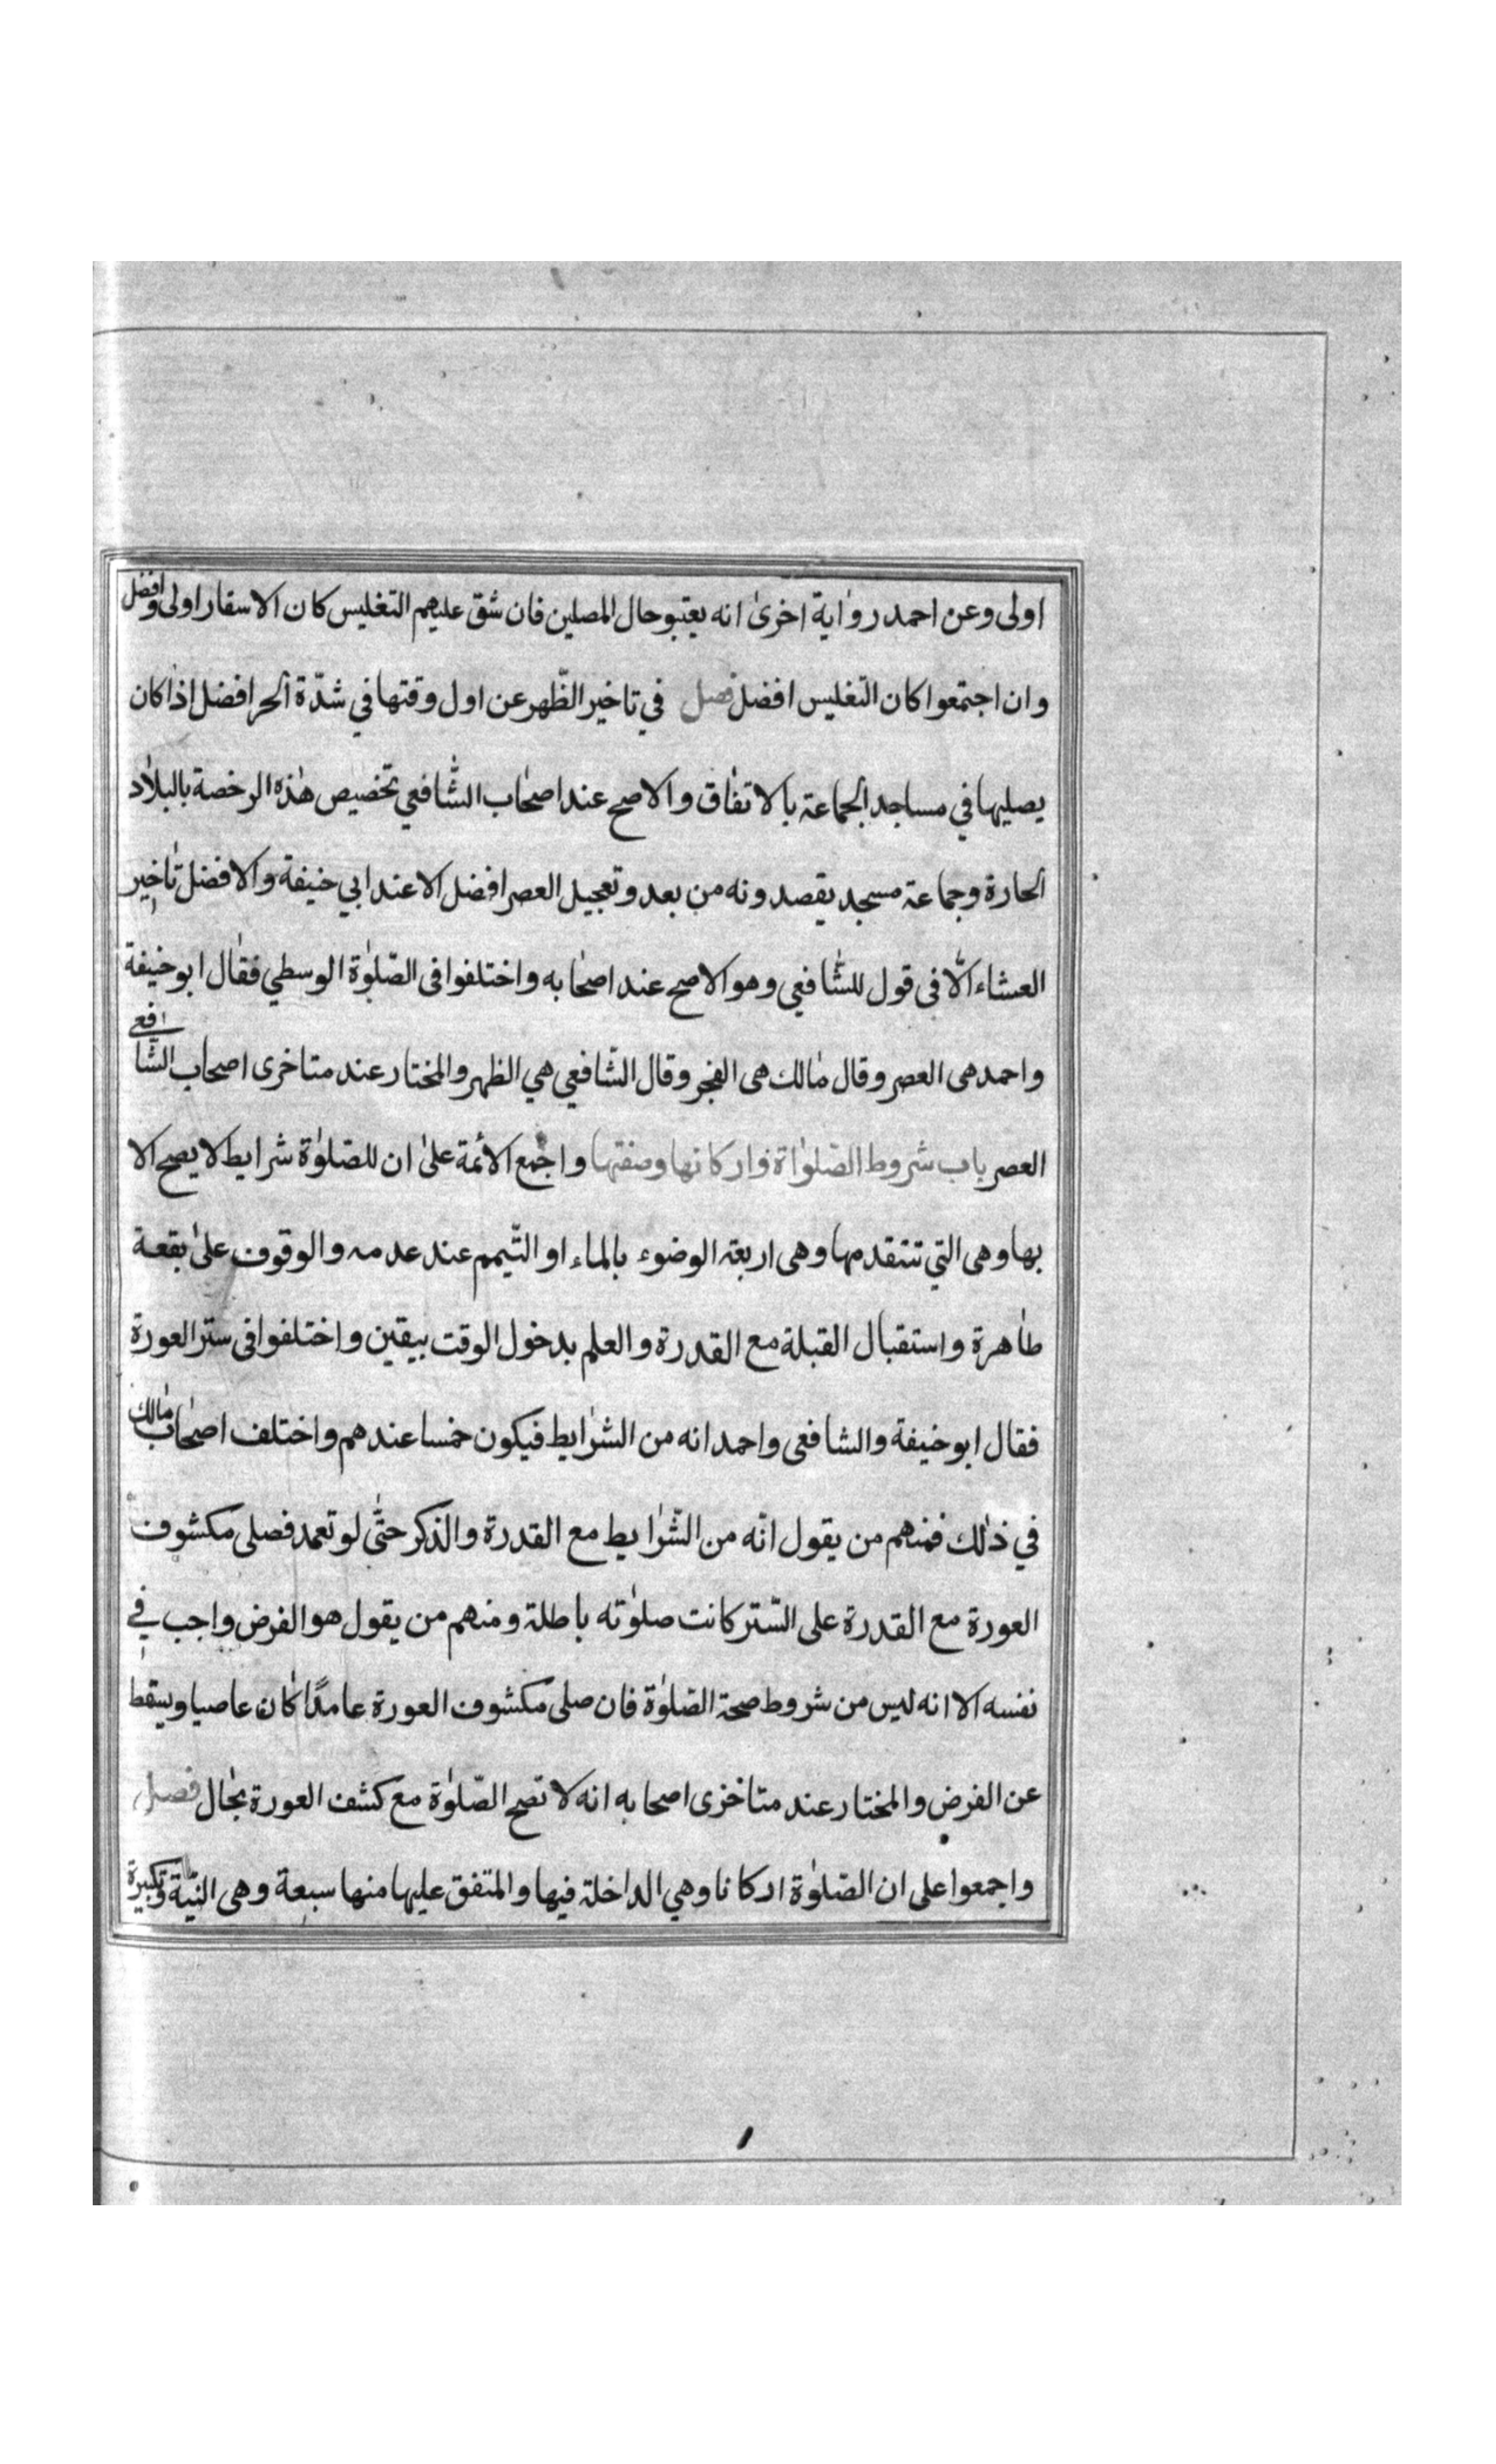 اولى وعن احمد رواية اخرى انه يعتبر حال المصلين فان شق عليهم التغليس كان الاسفار اولى وافضل
وان اجتمعوا كان التغليس افضل فصل في تاخير الظّهر عن اول وقتها في شدّة الحر افضل اذا كان
يصليها في مساجد الجماعة بالاتفاق والاصح عند اصحاب الشّافعي تخصيص هذه الرخصة بالبلاد
الحارة وجماعة مسجد يقصدونه من بعد وتعجيل العصر افضل الا عند ابي حنيفة والافضل تاخير
العشاء الّا فى قول للشّافعي وهو الاصح عند اصحابه واختلفوا فى الصّلوٰة الوسطي فقال ابو حنيفة
واحمد هى العصر وقال مالك هى الفجر وقال الشّافعي هي الظهر والمختار عند متاخرى اصحاب الشّافعي
العصر باب شروط الصّلوٰاة واركانها وصفتها واجمع الائمة على ان للصّلوٰة شرايط لا يصح الا
بها وهى التي تتقدمها وهى اربعة الوضوء بالماء او التّيمم عند عدمه والوقوف على بقعة
طاهرة واستقبال القبلة مع القدرة والعلم بدخول الوقت بيقين واختلفوا فى ستر العورة
فقال ابو حنيفة والشافعى واحمد انه من الشرايط فيكون خمسا عندهم واختلف اصحاب مالك
في ذلك فمنهم من يقول انّه من الشّرايط مع القدرة والذكر حتّى لو تعمد فصلى مكشوف
العورة مع القدرة على السّتر كانت صلوٰته باطلة ومنهم من يقول هو الفرض واجب في
نفسه الا انه ليس من شروط صحة الصّلوٰة فان صلى مكشوف العورة عامدًا كان عاصيا ويسقط
عن الفرض والمختار عند متاخرى اصحابه انه لا تصح الصّلوٰة مع كشف العورة بحال فصل
واجمعوا على ان الصّلوٰة اركانا وهي الداخلة فيها والمتفق عليها منها سبعة وهى النيّة وتكبيرة